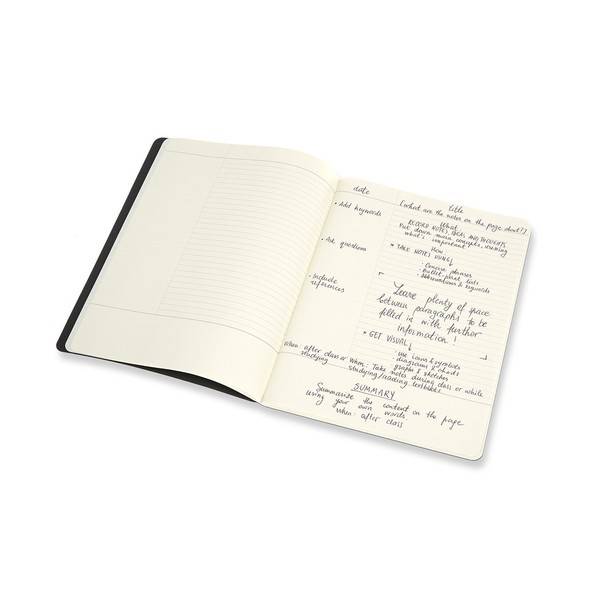 date
title
[what are the notes on the page about?]
• Add keywords
What
RECORD NOTES, IDEAS AND THOUGHTS
Put down main concepts, evening
what's important
• Ask questions
How
• TAKE NOTES USING↓
• Concise phrases
• bullet point lists
• abbreviations & keywords
• Include
references
Leave plenty of space
between paragraphs to be
filled in with further
information!
• GET VISUAL↓
• use icons & symbols
• diagrams & charts
• graphs & sketches
When after class or
studying
When: Take notes during class or while
studying/reading textbooks
SUMMARY
Summarize the content on the page
using your own words
when: after class